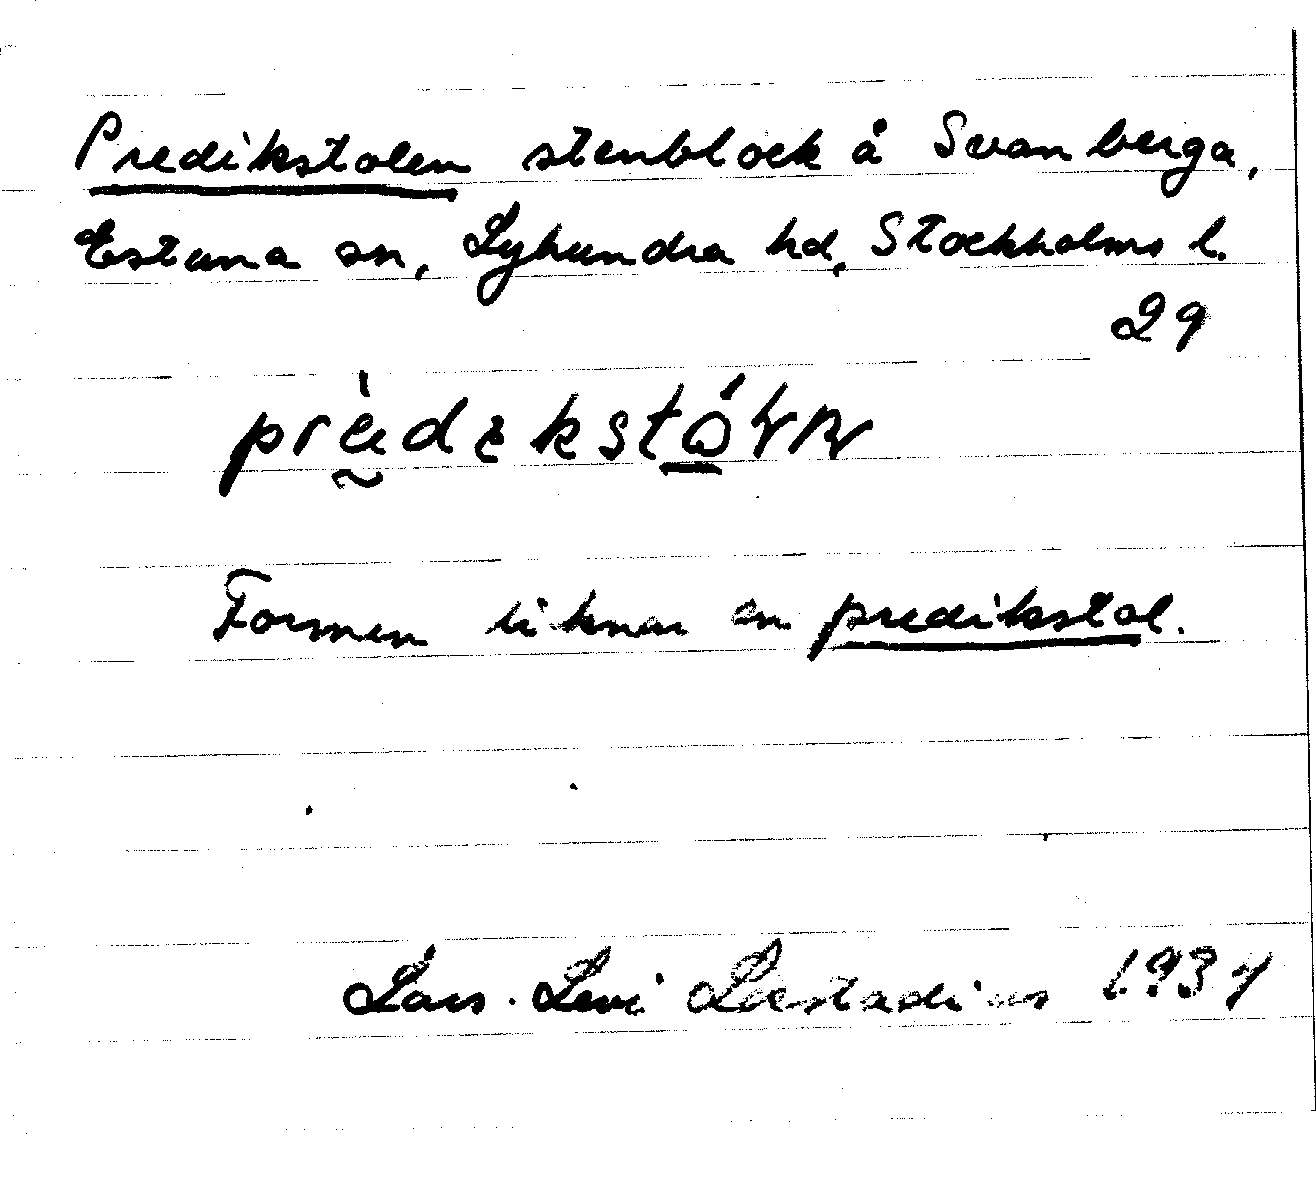 Predikstolen stenblock å Svanberga,
Estuna sn, Lyhundra hd, Stockholms l.
29
Formen liknar en predikstol.
Lars-Levi Læstadius